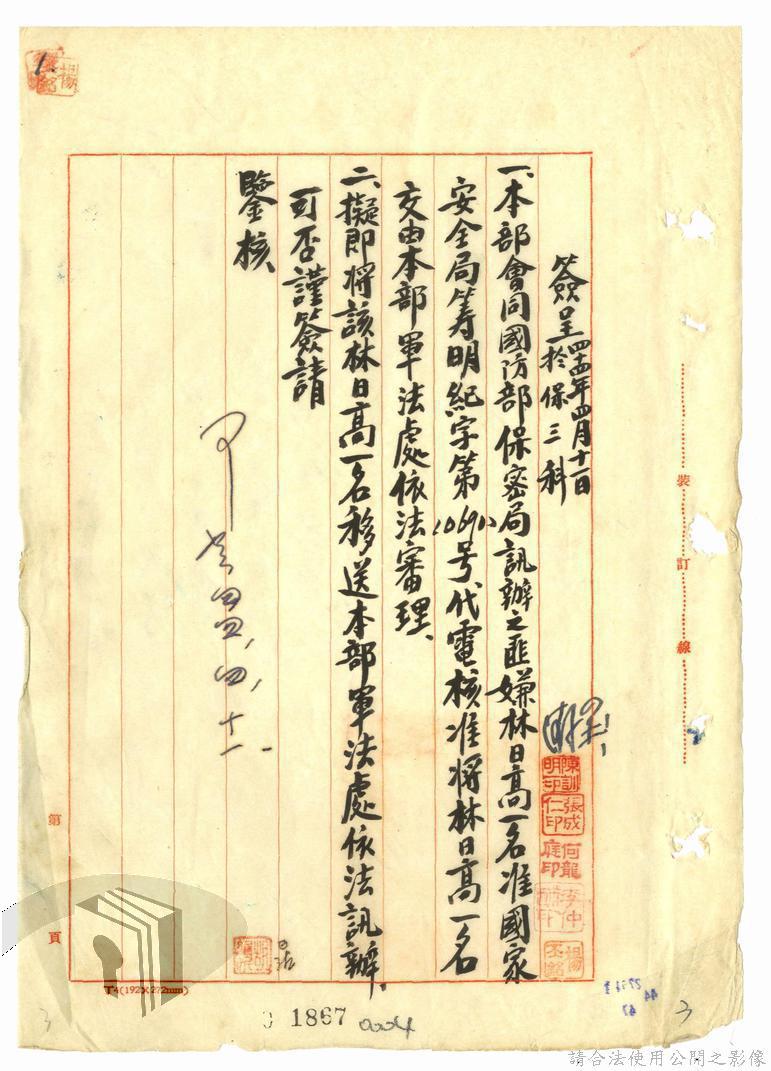 簽呈 四十四年四月十一日
於保三科
一、本部會同國防部保密局訊辦之匪嫌林日高一名准國家
安全局筹明紀字第1069號代電核准將林日高一名
交由本部軍法處依法審理、
二、擬即將該林日高一名移送本部軍法處依法訊辦、
可否謹簽請
鑒核、
可
四四、四、十一
陳訓明印
張成仁印
何龍庭印
裝訂線
第 頁
T4(192X272mm)
1867
0004
3
3
請合法使用公開之影像